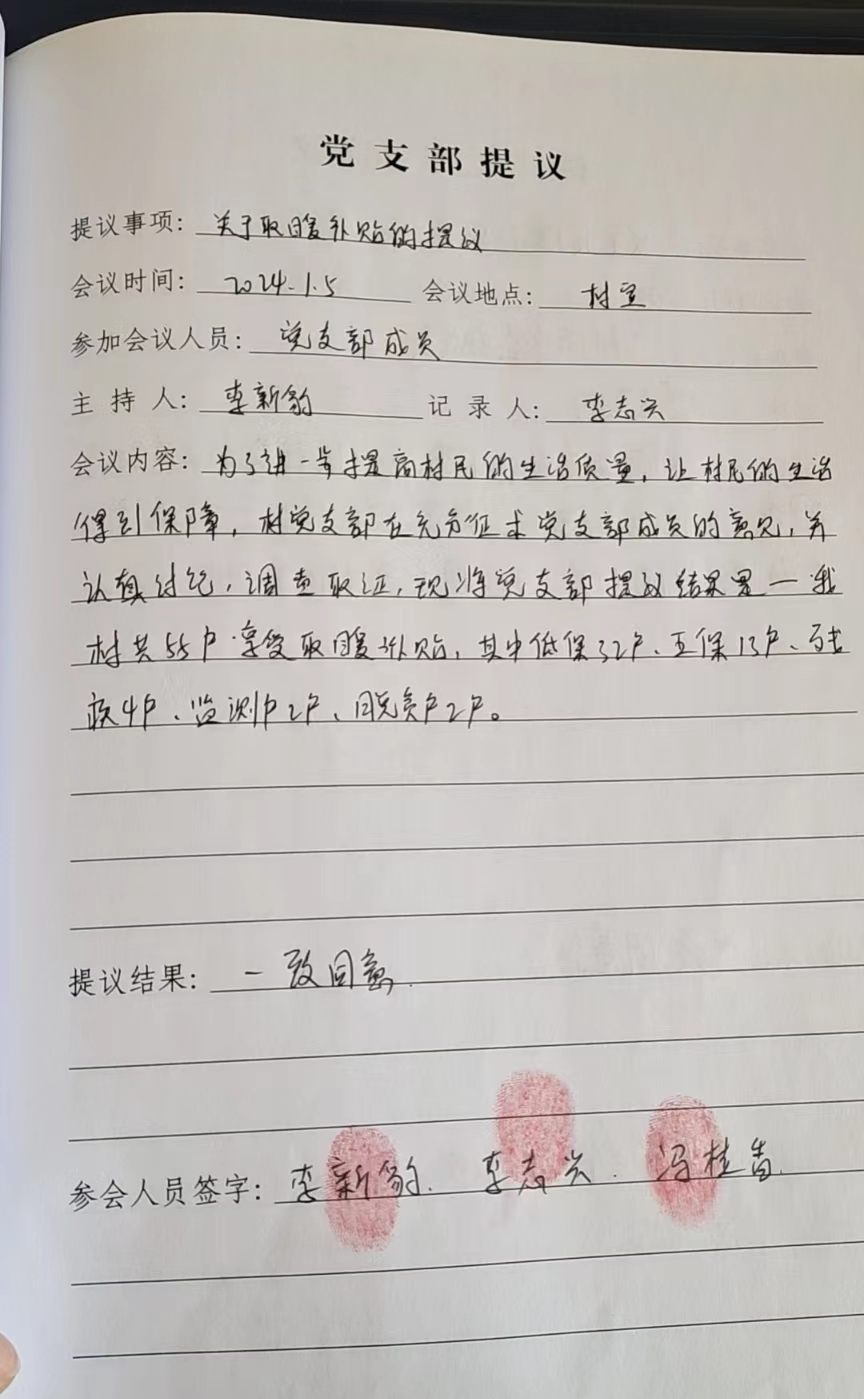 党支部提议
提议事项：关于取暖补贴的提议
会议时间：2024.1.5 会议地点：村室
参加会议人员：党支部成员
主持人：李新豹 记录人：李志兴
会议内容：为了进一步提高村民的生活质量，让村民的生活
得到保障，村党支部在充分征求党支部成员的意见，并
认真讨论，调查取证，现将党支部提议结果是一我
村共55户享受取暖补贴，其中低保32户、五保13户、残
疾4户、监测户2户、脱贫户2户。
提议结果：一致同意.
参会人员签字：李新豹. 李志兴. 冯桂香.